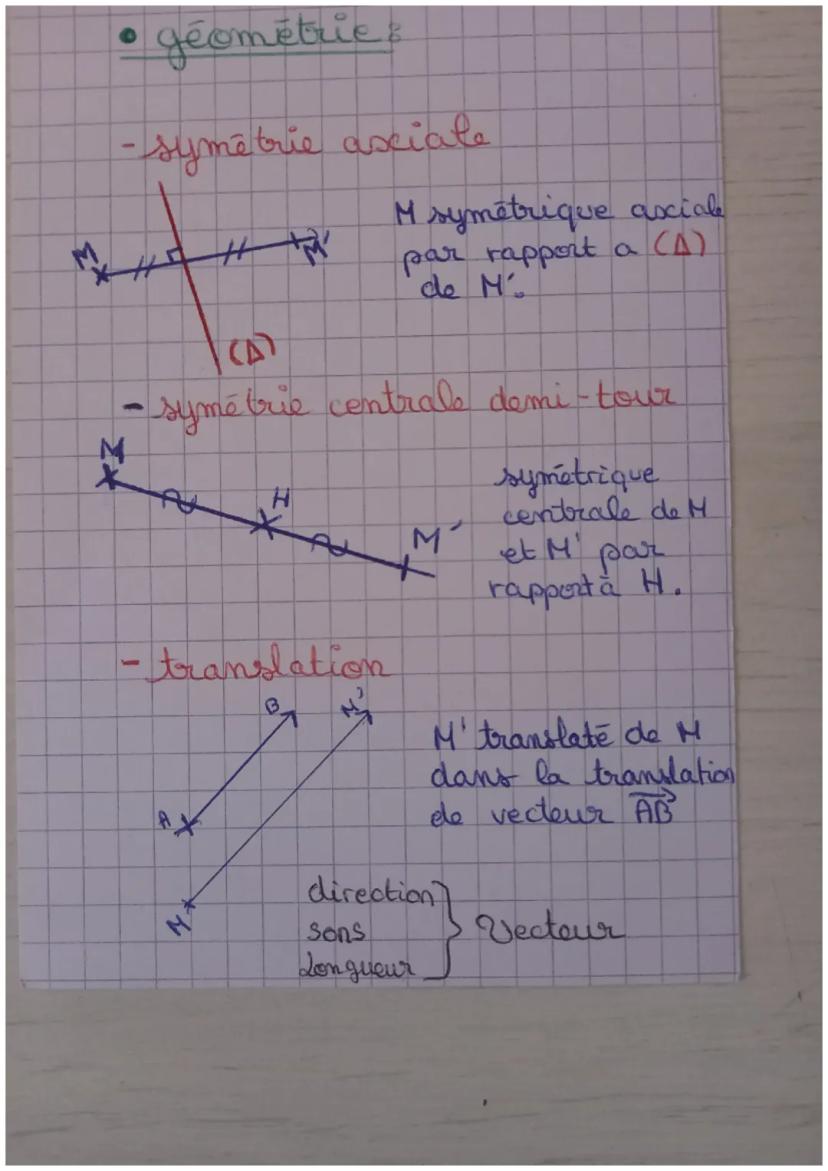 • géométrie:
- symétrie axciale
M
M'
(Δ)
M symétrique axciale
par rapport a (Δ)
de M'.
- symétrie centrale demi-tour
M
H
M'
symétrique
centrale de M
et M' par
rapport à H.
- translation
B
M'
A
M
M' translaté de M
dans la translation
de vecteur AB
direction
sens
longueur
} Vecteur